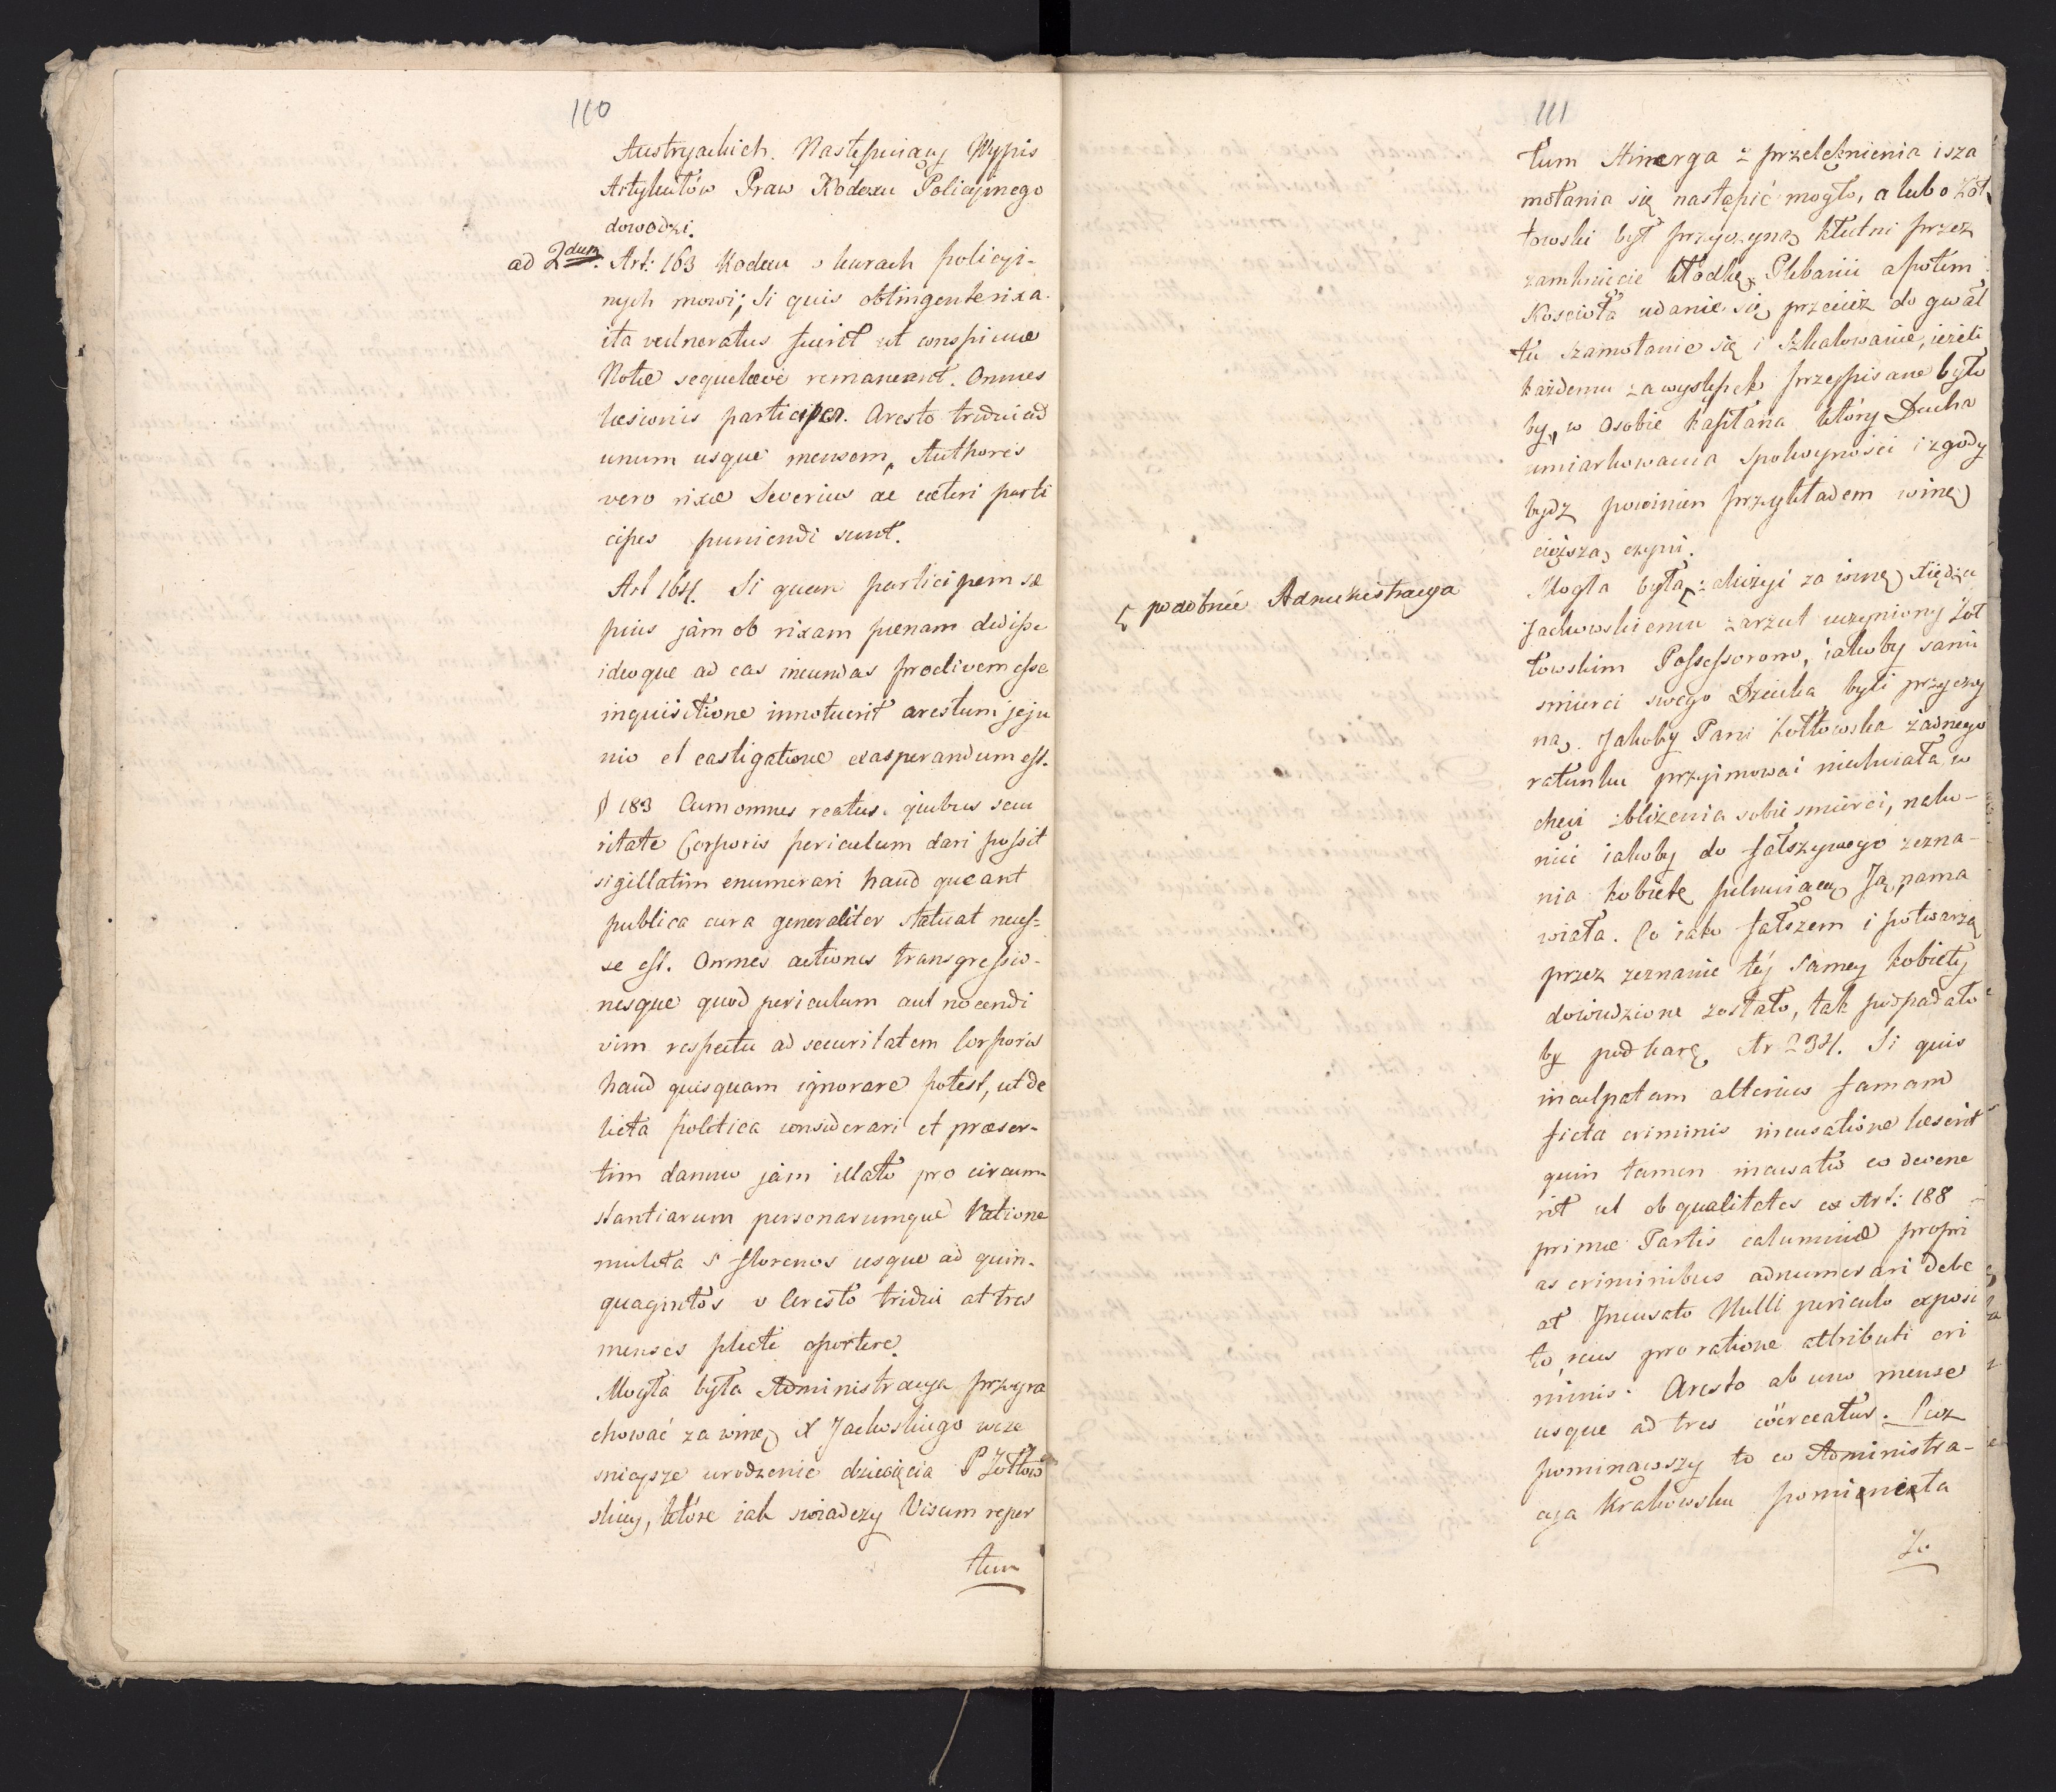 110
Austryackich. Następuiący Wypis
Artykułów Praw Kodexu Policyinego
dowodzi.
ad 2dum. Art: 163 Kodexu o karach policyi-
nych mowi; Si quis obtingente rixa
ita vulneratus fuerit ut conspicuæ
Notæ sequelæve remaneant. Omnes
læsionis participes. Aresto tridui ad
unum usque mensem, Authores
vero rixæ Severius ac cæteri parti
cipes puniendi sunt.
Art 164. Si quem participem sæ
pius jàm ob rixam pœnam dedisse
ideoque ad eas ineundas proclivem esse
inquisitione innotuerit arestum jeju
nio et castigatione exasperandum est.
§ 183 Cum omnes reatus. quibus secu
ritate Corporis periculum dari possit
sigillatim enumerari haud queant
publica cura generaliter statuat neces-
se est. Omnes actiones transgressio-
nesque quod periculum aut nocendi
vim respectu ad securitatem Corporis
haud quisquam ignorare potest, ut de
licta politica considerari et præser-
tim damno jàm illato pro circum-
stantiarum personarumque Ratione
mulcta 5 florenos usque ad quin-
quagintos v Aresto tridui at tres
menses plecti oportere.
Mogła była Administracya przygra
chować za winę X Jackoskiego wcze
snieysze urodzenie dziecięcia P Żołtow
skiey, które iak swiadczy Visum reper
tum
111
tum Hinerga z przelęknienia i sza
motania się nastąpić mogło, a lubo Żoł
towski był przyczyną kłutni przez
zamknięcie kłodką Plebanii a potem
Koscioła udanie się przecież do gwał
tu szamotanie się i Szkalowanie, ieżeli
każdemu za występek przepisane było
by, w Osobie kapłana który Ducha
umiarkowania Spokoyności i zgody
bydz powinien przykładem winę
cięższą czyni.
Mogła była policzyć za winę Xiędzu
Jackowskiemu zarzut uczyniony Żoł
towskim Possessorom, iakoby sami
smierci swego Dziecka byli przyczy
ną. Jakoby Pani Żołtowska żadnego
ratunku przyimować niechciała w
chęci zbliżenia sobie smierci, nako-
niec iakoby do fałszywego zezna-
nia kobietę pilnuiącą Ją nama
wiała. Co iako fałszem i potwarzą
przez zeznanie téy Samey kobiety
dowiedzione zostało, tak podpadało
by pod karę Ar 234. Si quis
inculpatam alterius famam
ficta criminis incusatione læserit
quin tamen incusatio eo devene
rit ut ob qualitates ex Art: 188
primæ Partis calumniæ propri
as criminibus adnumerari debe
at Incusato Nulli periculo exposi
to, reus pro ratione attributi cri
minis. Aresto ab uno mense
usque ad tres coërceatur. Lecz
pominąwszy to co Administra-
cya Krakowska pominęła
Za
podobnie Administracya